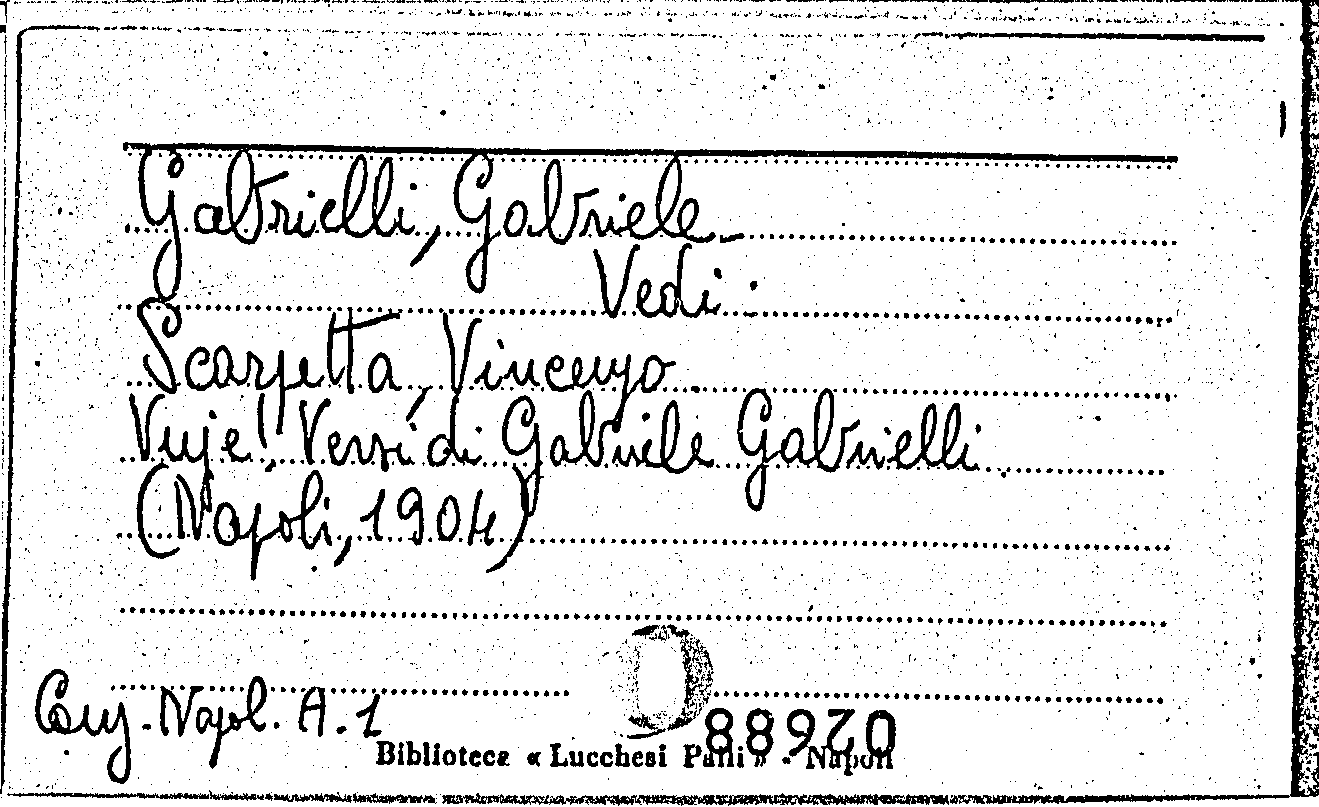 Gabrielli, Gabriele
Vedi:
Scarpetta, Vincenzo
Vuje! Versi di Gabriele Gabrielli
(Napoli, 1904)
Canz. Napol. A. 1
Biblioteca « Lucchesi Palli » - Napoli